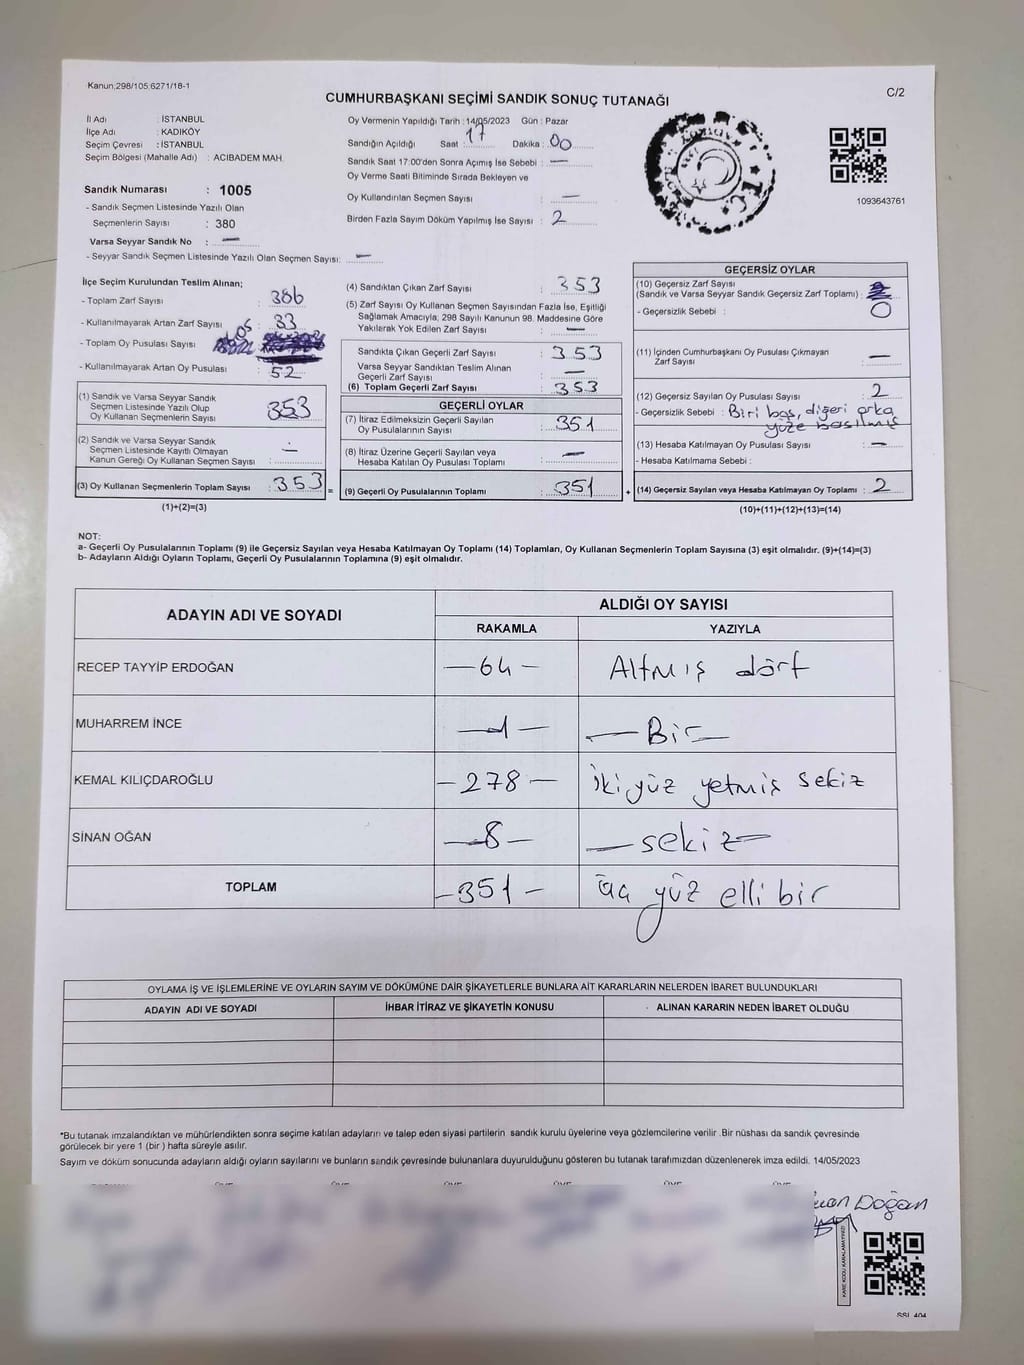 Kanun;298/105;6271/18-1
C/2
CUMHURBAŞKANI SEÇİMİ SANDIK SONUÇ TUTANAĞI
İl Adı : İSTANBUL
İlçe Adı : KADIKÖY
Seçim Çevresi : İSTANBUL
Seçim Bölgesi (Mahalle Adı) : ACIBADEM MAH.
Sandık Numarası : 1005
- Sandık Seçmen Listesinde Yazılı Olan
Seçmenlerin Sayısı : 380
Varsa Seyyar Sandık No : —
- Seyyar Sandık Seçmen Listesinde Yazılı Olan Seçmen Sayısı: —
Oy Vermenin Yapıldığı Tarih : 14/05/2023 Gün : Pazar
Sandığın Açıldığı Saat : 17 Dakika : 00
Sandık Saat 17:00'den Sonra Açımış İse Sebebi : —
Oy Verme Saati Bitiminde Sırada Bekleyen ve
Oy Kullandırılan Seçmen Sayısı : —
Birden Fazla Sayım Döküm Yapılmış İse Sayısı : 2
1093643761
İlçe Seçim Kurulundan Teslim Alınan;
- Toplam Zarf Sayısı : 386
- Kullanılmayarak Artan Zarf Sayısı : 33
- Toplam Oy Pusulası Sayısı :
- Kullanılmayarak Artan Oy Pusulası : 52
(1) Sandık ve Varsa Seyyar Sandık
Seçmen Listesinde Yazılı Olup
Oy Kullanan Seçmenlerin Sayısı : 353
(2) Sandık ve Varsa Seyyar Sandık
Seçmen Listesinde Kayıtlı Olmayan
Kanun Gereği Oy Kullanan Seçmen Sayısı : —
(3) Oy Kullanan Seçmenlerin Toplam Sayısı : 353 =
(1)+(2)=(3)
(4) Sandıktan Çıkan Zarf Sayısı : 353
(5) Zarf Sayısı Oy Kullanan Seçmen Sayısından Fazla İse, Eşitliği
Sağlamak Amacıyla; 298 Sayılı Kanunun 98. Maddesine Göre
Yakılarak Yok Edilen Zarf Sayısı : —
Sandıkta Çıkan Geçerli Zarf Sayısı : 353
Varsa Seyyar Sandıktan Teslim Alınan
Geçerli Zarf Sayısı : —
(6) Toplam Geçerli Zarf Sayısı : 353
GEÇERLİ OYLAR
(7) İtiraz Edilmeksizin Geçerli Sayılan
Oy Pusulalarının Sayısı : 351
(8) İtiraz Üzerine Geçerli Sayılan veya
Hesaba Katılan Oy Pusulası Toplamı : —
(9) Geçerli Oy Pusulalarının Toplamı : 351 +
GEÇERSİZ OYLAR
(10) Geçersiz Zarf Sayısı
(Sandık ve Varsa Seyyar Sandık Geçersiz Zarf Toplamı) :
- Geçersizlik Sebebi : 0
(11) İçinden Cumhurbaşkanı Oy Pusulası Çıkmayan
Zarf Sayısı : —
(12) Geçersiz Sayılan Oy Pusulası Sayısı : 2
- Geçersizlik Sebebi : Biri boş, diğeri arka
yüze basılmış
(13) Hesaba Katılmayan Oy Pusulası Sayısı : —
- Hesaba Katılmama Sebebi :
(14) Geçersiz Sayılan veya Hesaba Katılmayan Oy Toplamı : 2
(10)+(11)+(12)+(13)=(14)
NOT:
a- Geçerli Oy Pusulalarının Toplamı (9) ile Geçersiz Sayılan veya Hesaba Katılmayan Oy Toplamı (14) Toplamları, Oy Kullanan Seçmenlerin Toplam Sayısına (3) eşit olmalıdır. (9)+(14)=(3)
b- Adayların Aldığı Oyların Toplamı, Geçerli Oy Pusulalarının Toplamına (9) eşit olmalıdır.
ADAYIN ADI VE SOYADI
ALDIĞI OY SAYISI
RAKAMLA YAZIYLA
RECEP TAYYİP ERDOĞAN — 64 — Altmış dört
MUHARREM İNCE — 1 — — Bir —
KEMAL KILIÇDAROĞLU — 278 — iki yüz yetmiş sekiz
SİNAN OĞAN — 8 — — sekiz —
TOPLAM — 351 — üç yüz elli bir
OYLAMA İŞ VE İŞLEMLERİNE VE OYLARIN SAYIM VE DÖKÜMÜNE DAİR ŞİKAYETLERLE BUNLARA AİT KARARLARIN NELERDEN İBARET BULUNDUKLARI
ADAYIN ADI VE SOYADI İHBAR İTİRAZ VE ŞİKAYETİN KONUSU ALINAN KARARIN NEDEN İBARET OLDUĞU
*Bu tutanak imzalandıktan ve mühürlendikten sonra seçime katılan adayların ve talep eden siyasi partilerin sandık kurulu üyelerine veya gözlemcilerine verilir .Bir nüshası da sandık çevresinde
görülecek bir yere 1 (bir ) hafta süreyle asılır.
Sayım ve döküm sonucunda adayların aldığı oyların sayılarını ve bunların sandık çevresinde bulunanlara duyurulduğunu gösteren bu tutanak tarafımızdan düzenlenerek imza edildi. 14/05/2023
Doğan
KARE KODU KARALAMAYINIZ!